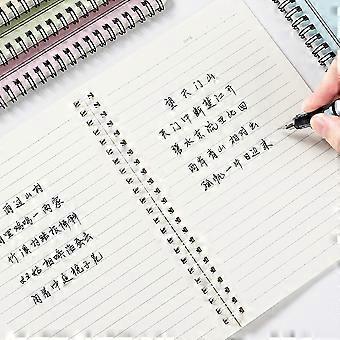 雨过山村
里鸡鸣一两家
竹溪村路板桥斜
妇姑相唤浴蚕去
闲着中庭栀子花
望天门山
天门中断楚江开
碧水东流至此回
两岸青山相对出
孤帆一片日边来